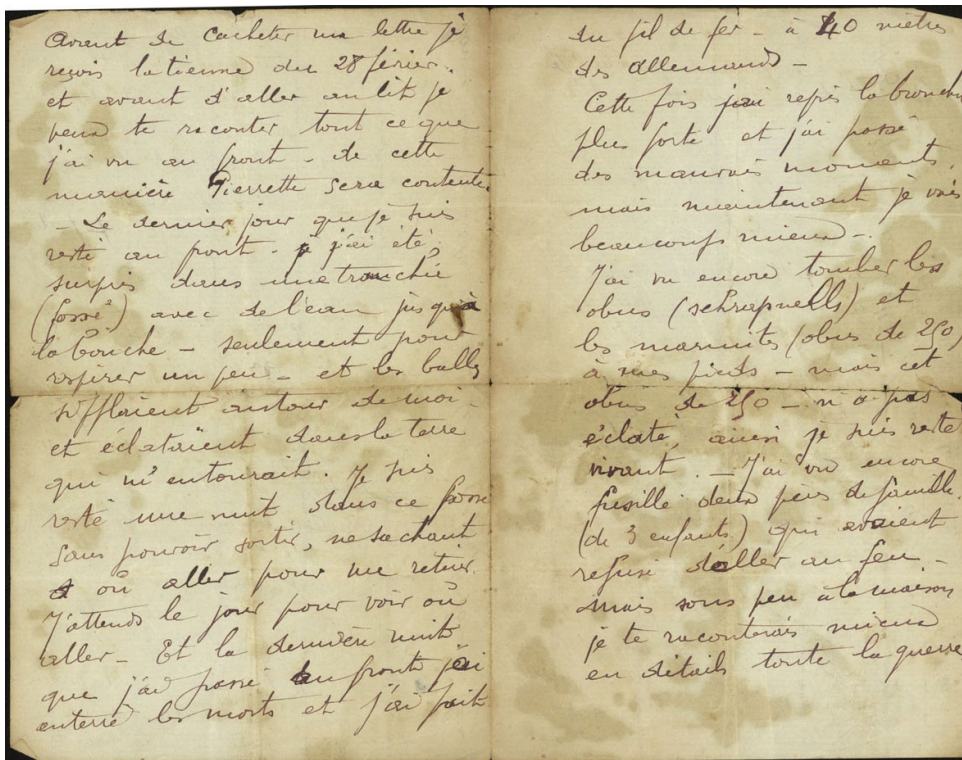 Avant de cacheter ma lettre je
reçois la tienne du 28 février.
et avant d'aller au lit je
veux te raconter tout ce que
j'ai vu au front - de cette
manière Pierrette sera contente.
- Le dernier jour que je suis
resté au front - j'ai été
surpris dans une tranchée
(fossé) avec de l'eau jusqu'à
la bouche - seulement pour
respirer un peu - et les balles
sifflaient autour de moi -
et éclataient dans la terre
qui m'entourait. Je suis
resté une nuit dans ce fossé
sans pouvoir sortir, ne sachant
où aller pour me retirer.
J'attends le jour pour voir où
aller - Et la dernière nuit
que j'ai passé au front j'ai
enterré les morts et j'ai fait
du fil de fer - à 40 mètres
des allemands -
Cette fois j'ai repris la bronchite
plus forte et j'ai passé
des mauvais moments.
mais maintenant je vais
beaucoup mieux -.
J'ai vu encore tomber les
obus (schrapnells) et
les marmites (obus de 250)
à mes pieds - mais cet
obus de 250 - n'a pas
éclaté, ainsi je suis resté
vivant. - J'ai vu encore
fusillé deux pères de famille.
(de 3 enfants) qui avaient
refusé d'aller au feu -
Mais sous peu à la maison
je te raconterais mieux
en détails toute la guerre